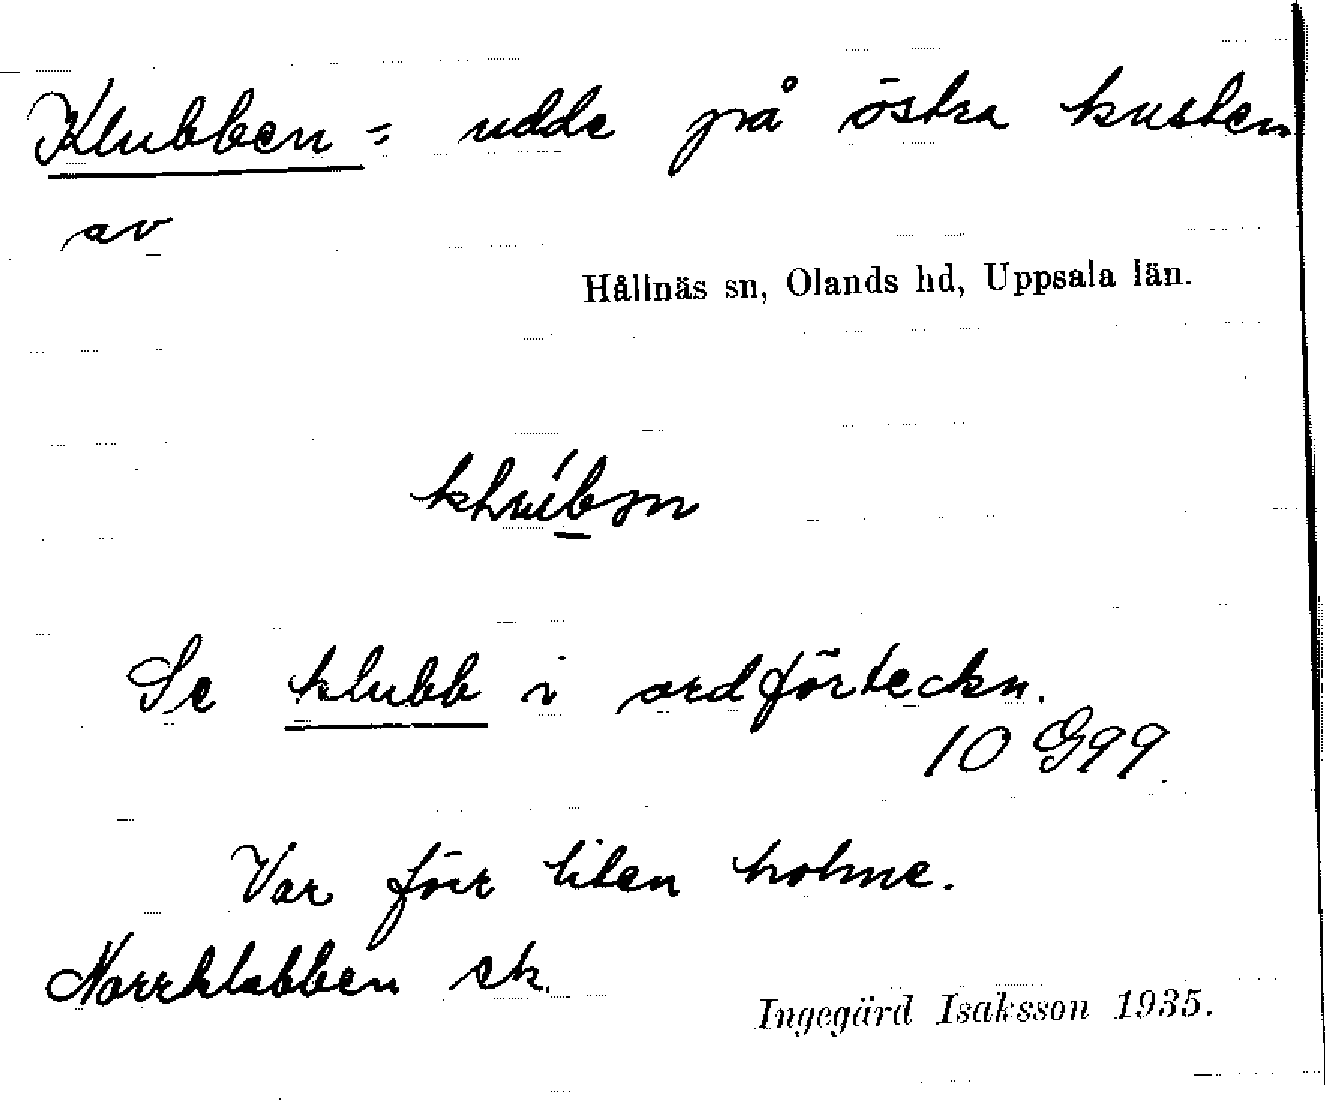 Klubben = udde på östra kusten
av
Hållnäs sn, Olands hd, Uppsala län.
Se klubb i ordförteckn.
10 G99.
Var förr liten holme.
Norrklabben ek.
Ingegärd Isaksson 1935.